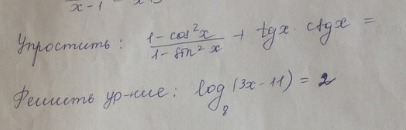 x-1
Упростить: \frac{1-cos²x}{1-sin²x} + tgx · ctgx =
Решить ур-ние: log₈(3x-11) = 2